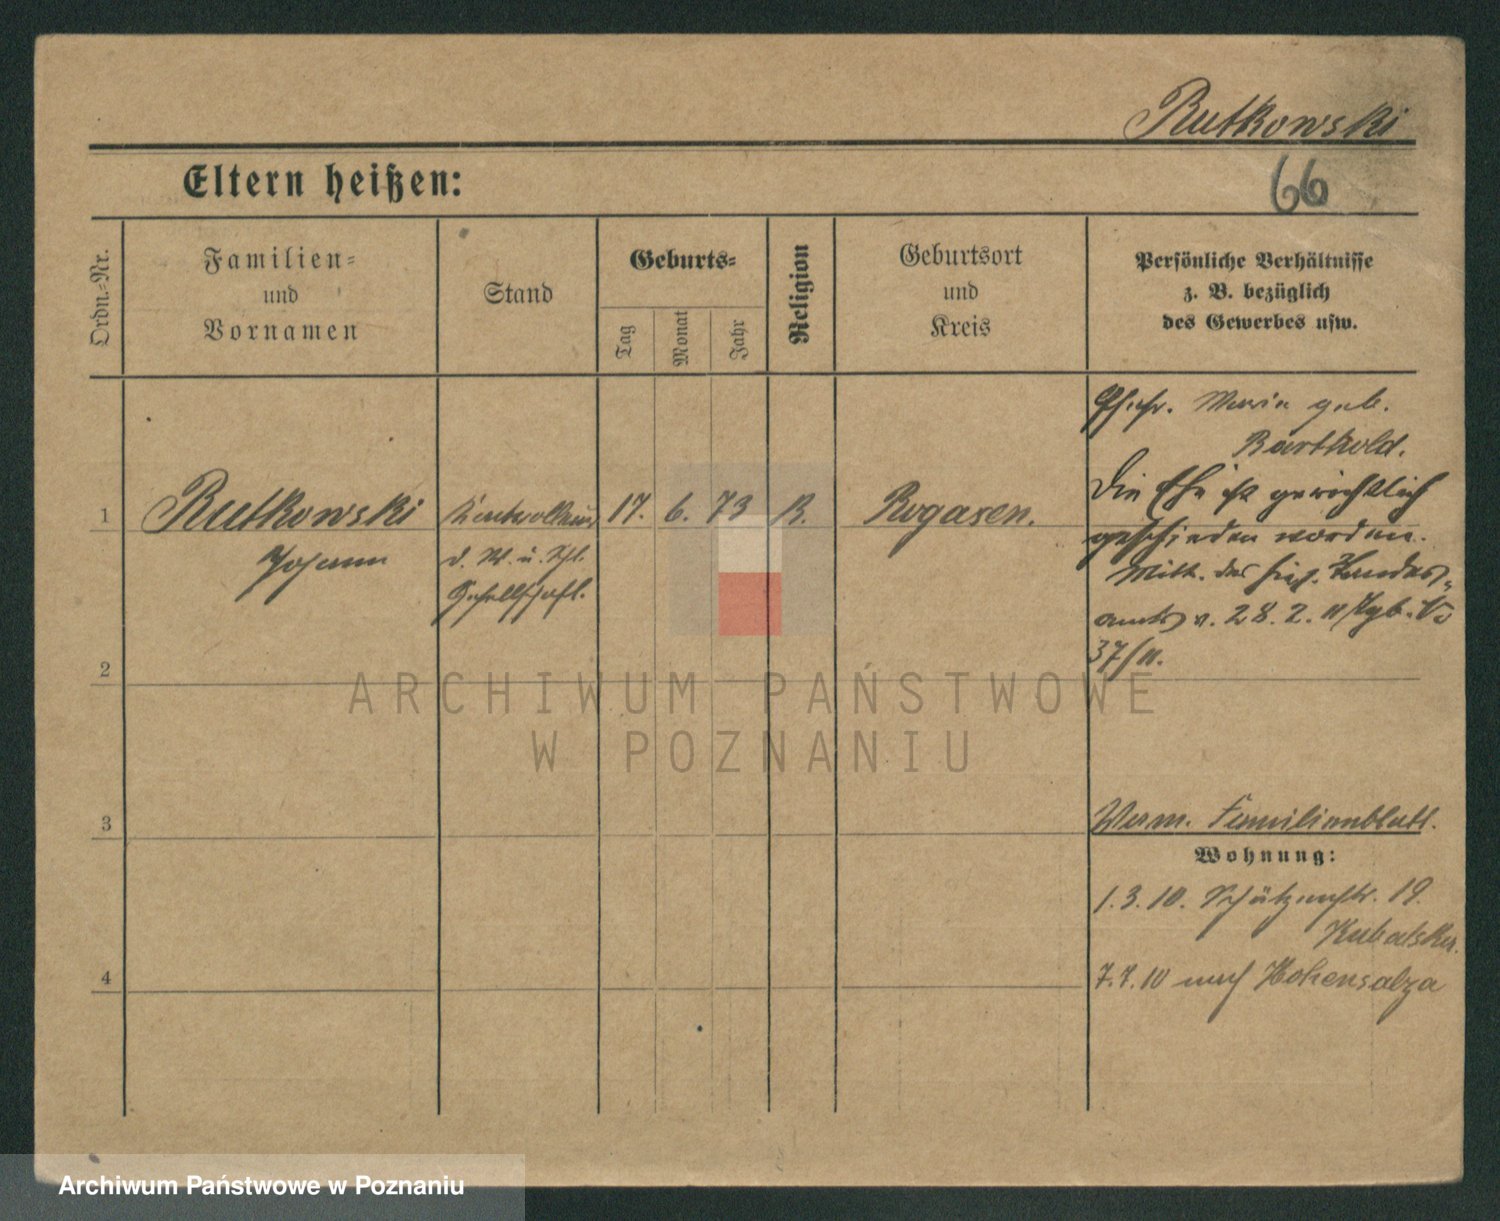 Rutkowski
66
Eltern heißen:
Ordn.-Nr.
Familien-
und
Vornamen
Stand
Geburts-
Tag
Monat
Jahr
Religion
Geburtsort
und
Kreis
Persönliche Verhältnisse
z. B. bezüglich
des Gewerbes usw.
Ehefr. Marie geb.
Barthold.
Die Ehe ist gerichtlich
geschieden worden.
Mitt. des hies. Standes-
amts v. 28. 2. 11
37/11.
1
Rutkowski
Johann
d. W. u. Schl.
Gesellschaft.
17.
6.
73
R.
Rogasen.
2
3
4
Verm. Familienblatt.
Wohnung:
1.3.10. Schützenstr. 19.
7.7.10 nach Hohensalza
ARCHIWUM PAŃSTWOWE
W POZNANIU
Archiwum Państwowe w Poznaniu